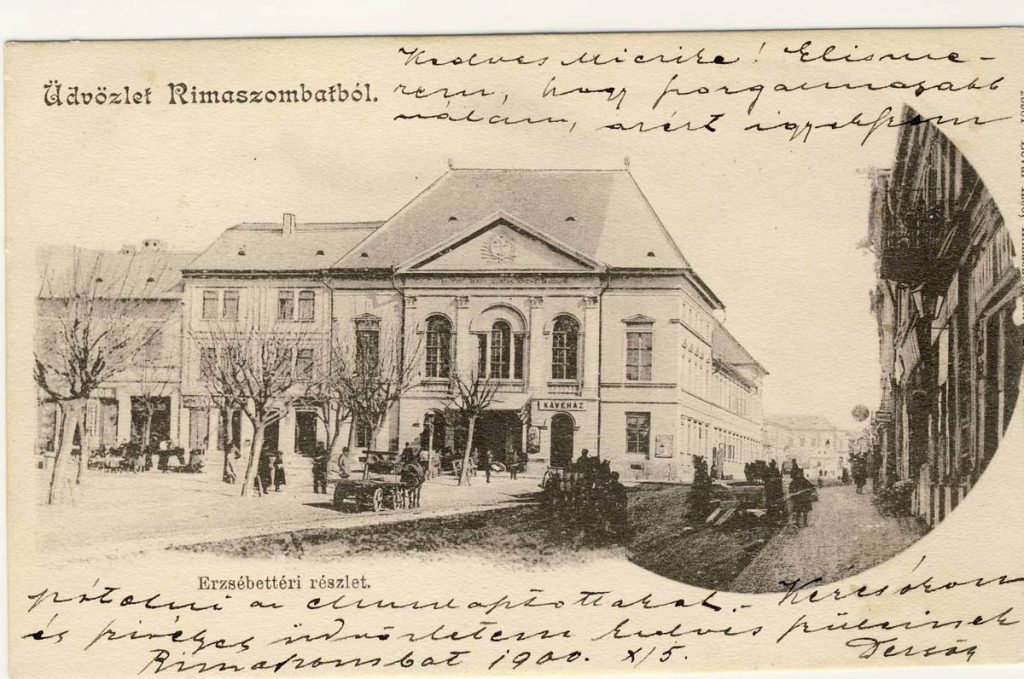 Üdvözlet Rimaszombatból.
Kedves Miczike! Elisme-
rem, hogy szorgalmasabb
nálam, azért igyekszem
KÁVÉHÁZ
Erzsébettéri részlet.
pótolni az elmulasztottakat.
és szívélyes üdvözletem kedves szüleinek
Rimaszombat 1900. X/5.